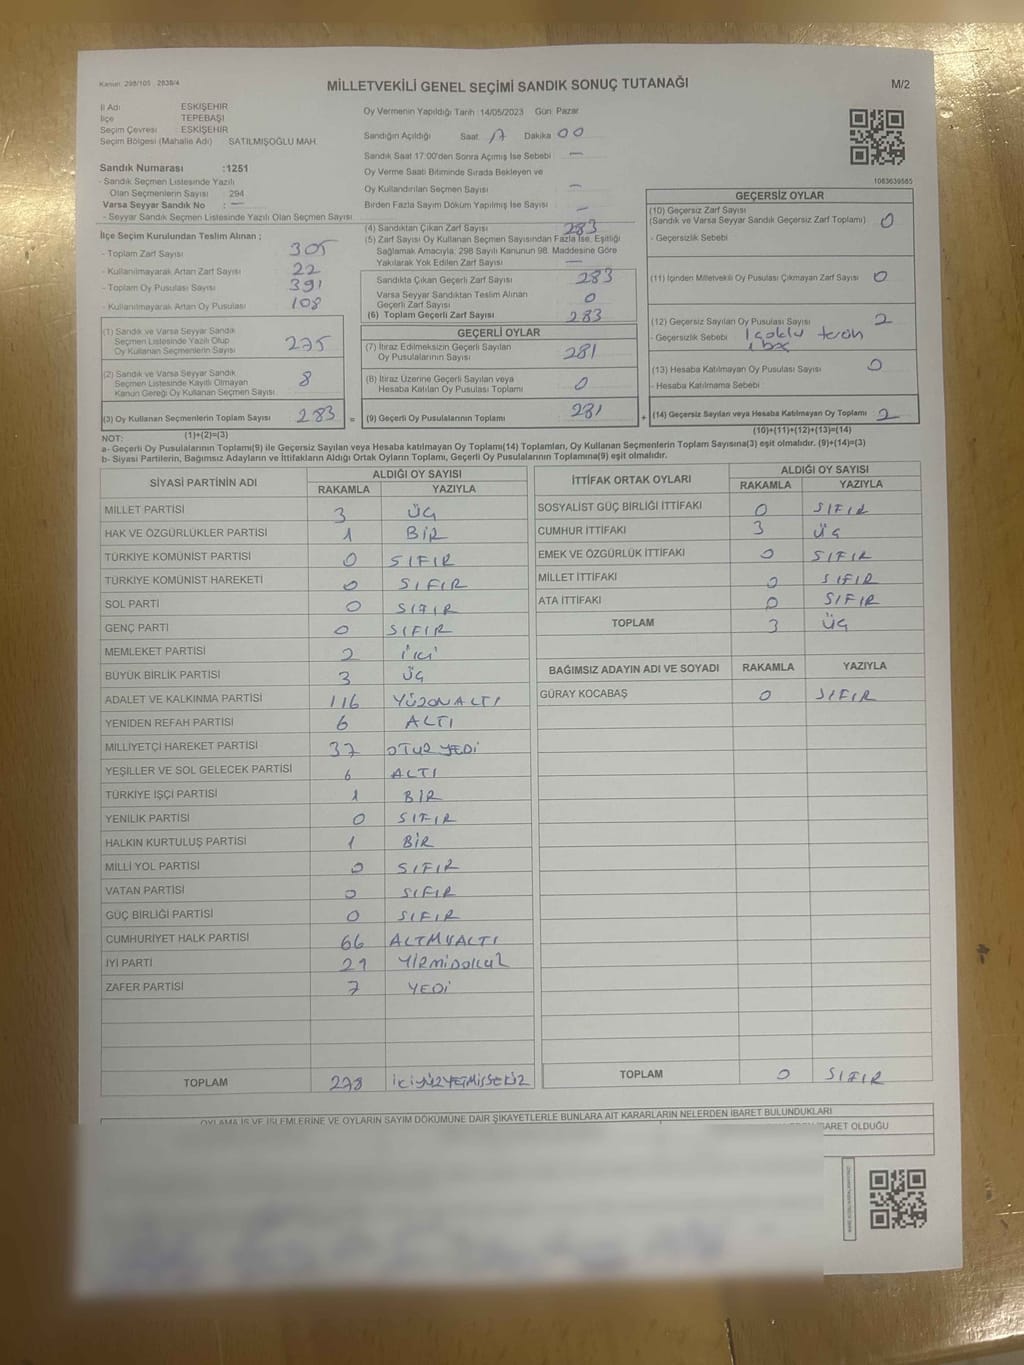 Kanun: 298/105 , 2839/4
MİLLETVEKİLİ GENEL SEÇİMİ SANDIK SONUÇ TUTANAĞI
M/2
İl Adı ESKİŞEHİR
İlçe TEPEBAŞI
Seçim Çevresi ESKİŞEHİR
Seçim Bölgesi (Mahalle Adı) SATILMIŞOĞLU MAH.
Sandık Numarası :1251
- Sandık Seçmen Listesinde Yazılı
Olan Seçmenlerin Sayısı : 294
Varsa Seyyar Sandık No : —
- Seyyar Sandık Seçmen Listesinde Yazılı Olan Seçmen Sayısı
İlçe Seçim Kurulundan Teslim Alınan ;
- Toplam Zarf Sayısı 305
- Kullanılmayarak Artan Zarf Sayısı 22
- Toplam Oy Pusulası Sayısı 391
- Kullanılmayarak Artan Oy Pusulası 108
(1) Sandık ve Varsa Seyyar Sandık
Seçmen Listesinde Yazılı Olup
Oy Kullanan Seçmenlerin Sayısı 275
(2) Sandık ve Varsa Seyyar Sandık
Seçmen Listesinde Kayıtlı Olmayan
Kanun Gereği Oy Kullanan Seçmen Sayısı 8
(3) Oy Kullanan Seçmenlerin Toplam Sayısı 283 =
(1)+(2)=(3)
Oy Vermenin Yapıldığı Tarih :14/05/2023 Gün: Pazar
Sandığın Açıldığı Saat: 17 Dakika 00
Sandık Saat 17:00'den Sonra Açılmış İse Sebebi —
Oy Verme Saati Bitiminde Sırada Bekleyen ve
Oy Kullandırılan Seçmen Sayısı —
Birden Fazla Sayım Döküm Yapılmış İse Sayısı —
(4) Sandıktan Çıkan Zarf Sayısı 283
(5) Zarf Sayısı Oy Kullanan Seçmen Sayısından Fazla İse, Eşitliği
Sağlamak Amacıyla; 298 Sayılı Kanunun 98. Maddesine Göre
Yakılarak Yok Edilen Zarf Sayısı —
Sandıkta Çıkan Geçerli Zarf Sayısı 283
Varsa Seyyar Sandıktan Teslim Alınan
Geçerli Zarf Sayısı 0
(6) Toplam Geçerli Zarf Sayısı 283
GEÇERLİ OYLAR
(7) İtiraz Edilmeksizin Geçerli Sayılan
Oy Pusulalarının Sayısı 281
(8) İtiraz Üzerine Geçerli Sayılan veya
Hesaba Katılan Oy Pusulası Toplamı 0
(9) Geçerli Oy Pusulalarının Toplamı 281 +
1063639565
GEÇERSİZ OYLAR
(10) Geçersiz Zarf Sayısı
(Sandık ve Varsa Seyyar Sandık Geçersiz Zarf Toplamı) 0
- Geçersizlik Sebebi
(11) İçinden Milletvekili Oy Pusulası Çıkmayan Zarf Sayısı 0
(12) Geçersiz Sayılan Oy Pusulası Sayısı 2
- Geçersizlik Sebebi 1 çoklu tercih
1 boş
(13) Hesaba Katılmayan Oy Pusulası Sayısı 0
- Hesaba Katılmama Sebebi
(14) Geçersiz Sayılan veya Hesaba Katılmayan Oy Toplamı 2
(10)+(11)+(12)+(13)=(14)
NOT:
a- Geçerli Oy Pusulalarının Toplamı(9) ile Geçersiz Sayılan veya Hesaba katılmayan Oy Toplamı(14) Toplamları, Oy Kullanan Seçmenlerin Toplam Sayısına(3) eşit olmalıdır. (9)+(14)=(3)
b- Siyasi Partilerin, Bağımsız Adayların ve İttifakların Aldığı Ortak Oyların Toplamı, Geçerli Oy Pusulalarının Toplamına(9) eşit olmalıdır.
SİYASİ PARTİNİN ADI ALDIĞI OY SAYISI
RAKAMLA YAZIYLA
MİLLET PARTİSİ 3 ÜÇ
HAK VE ÖZGÜRLÜKLER PARTİSİ 1 BİR
TÜRKİYE KOMÜNİST PARTİSİ 0 SIFIR
TÜRKİYE KOMÜNİST HAREKETİ 0 SIFIR
SOL PARTİ 0 SIFIR
GENÇ PARTİ 0 SIFIR
MEMLEKET PARTİSİ 2 İKİ
BÜYÜK BİRLİK PARTİSİ 3 ÜÇ
ADALET VE KALKINMA PARTİSİ 116 YÜZONALTI
YENİDEN REFAH PARTİSİ 6 ALTI
MİLLİYETÇİ HAREKET PARTİSİ 37 OTUZ YEDİ
YEŞİLLER VE SOL GELECEK PARTİSİ 6 ALTI
TÜRKİYE İŞÇİ PARTİSİ 1 BİR
YENİLİK PARTİSİ 0 SIFIR
HALKIN KURTULUŞ PARTİSİ 1 BİR
MİLLİ YOL PARTİSİ 0 SIFIR
VATAN PARTİSİ 0 SIFIR
GÜÇ BİRLİĞİ PARTİSİ 0 SIFIR
CUMHURİYET HALK PARTİSİ 66 ALTMIŞALTI
İYİ PARTİ 29 YİRMİDOKUZ
ZAFER PARTİSİ 7 YEDİ
TOPLAM 278 İKİYÜZYETMİŞSEKİZ
İTTİFAK ORTAK OYLARI ALDIĞI OY SAYISI
RAKAMLA YAZIYLA
SOSYALİST GÜÇ BİRLİĞİ İTTİFAKI 0 SIFIR
CUMHUR İTTİFAKI 3 ÜÇ
EMEK VE ÖZGÜRLÜK İTTİFAKI 0 SIFIR
MİLLET İTTİFAKI 0 SIFIR
ATA İTTİFAKI 0 SIFIR
TOPLAM 3 ÜÇ
BAĞIMSIZ ADAYIN ADI VE SOYADI RAKAMLA YAZIYLA
GÜRAY KOCABAŞ 0 SIFIR
TOPLAM 0 SIFIR
OYLAMA İŞ VE İŞLEMLERİNE VE OYLARIN SAYIM DÖKÜMÜNE DAİR ŞİKAYETLERLE BUNLARA AİT KARARLARIN NELERDEN İBARET BULUNDUKLARI
İBARET OLDUĞU